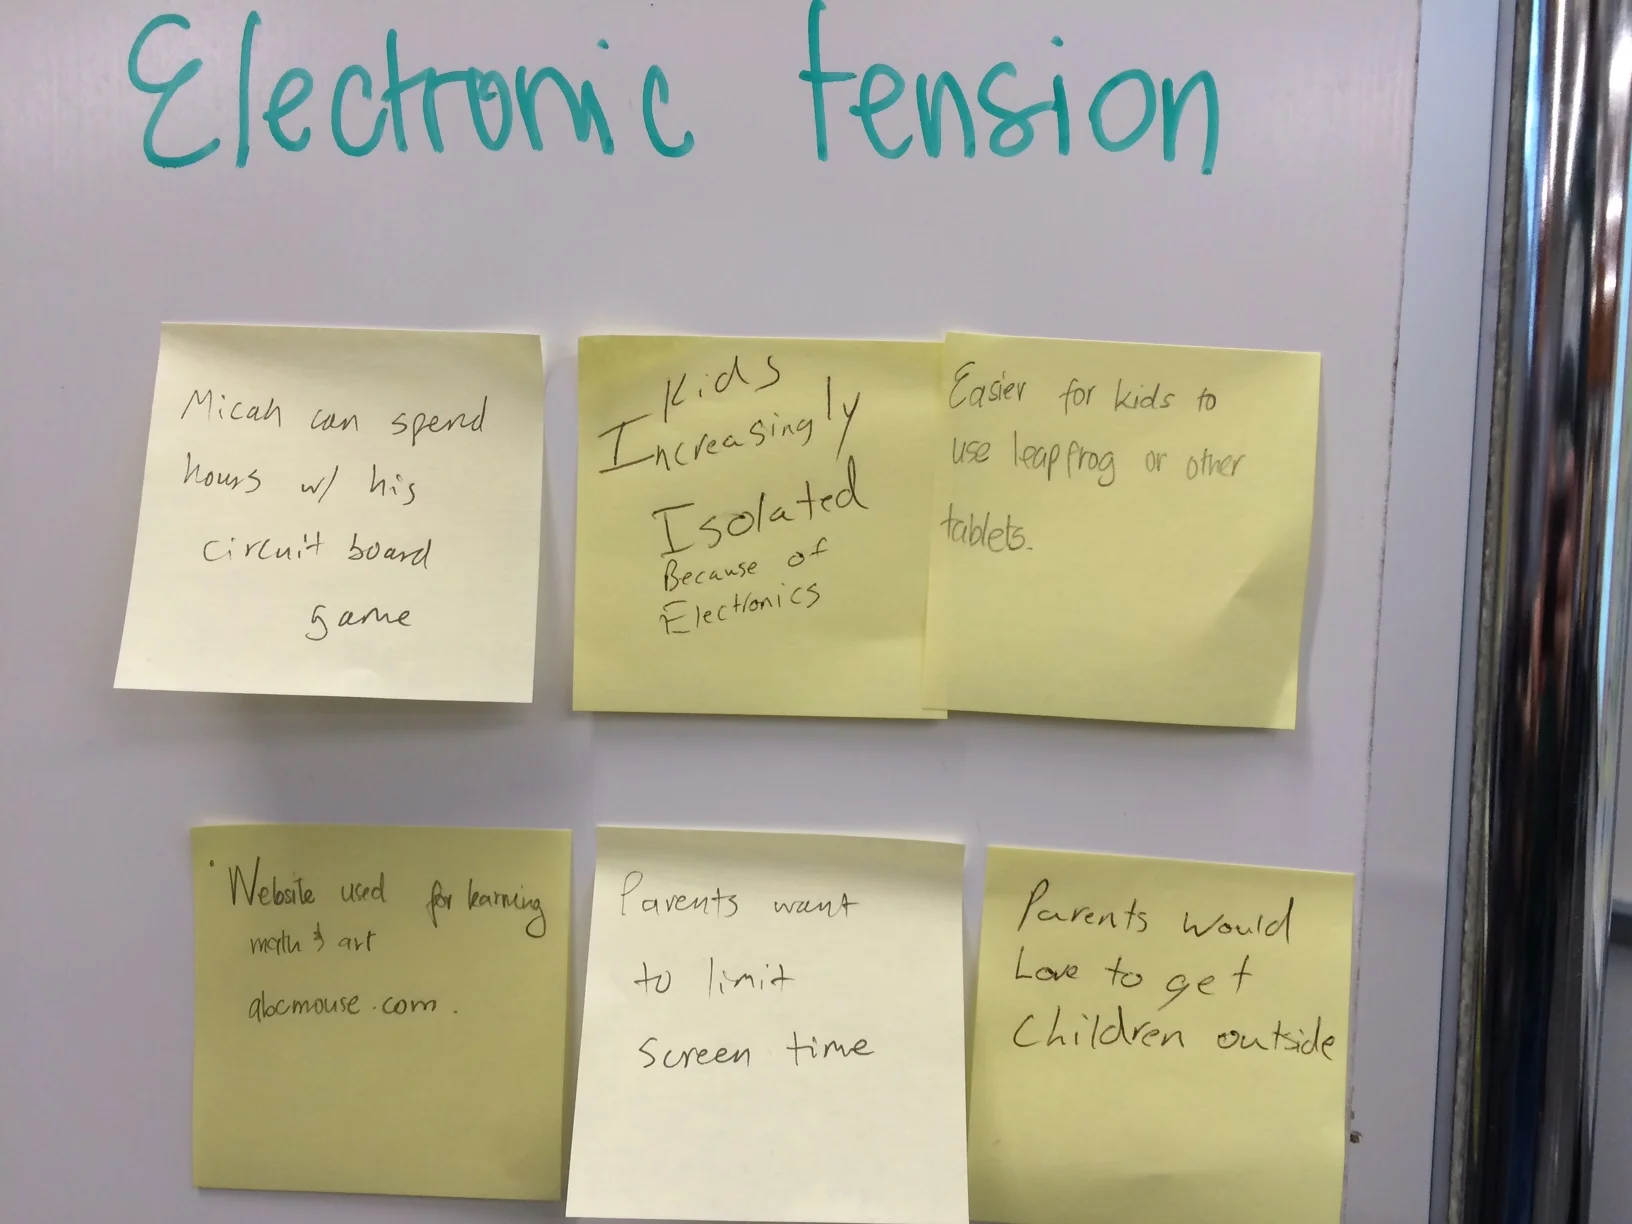 Electronic tension
Micah can spend
hours w/ his
circuit board
game
Kids
Increasingly
Isolated
Because of
Electronics
Easier for kids to
use leapfrog or other
tablets.
Website used for learning
math & art
abcmouse.com.
Parents want
to limit
screen time
Parents would
Love to get
Children outside